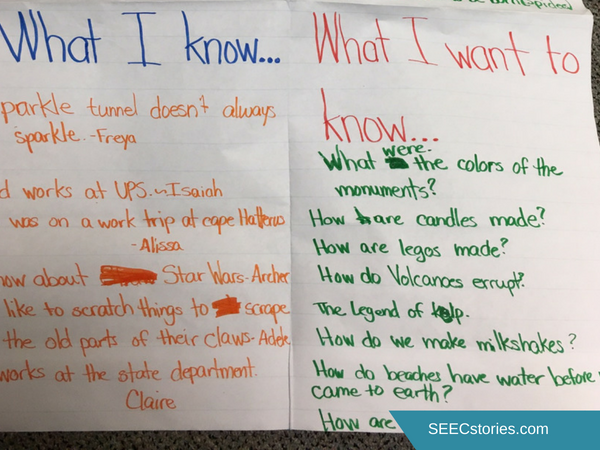 What I know...
parkle tunnel doesn't always
sparkle. -Freya
d works at UPS. - Isaiah
was on a work trip at cape Hatteras
- Alissa
now about Star Wars - Archer
like to scratch things to scrape
the old parts of their claws - Adele
works at the state department.
Claire
What I want to
know...
What were the colors of the
monuments?
How are candles made?
How are legos made?
How do Volcanoes errupt?
The Legend of
How do we make milkshakes?
How do beaches have water before
came to earth?
How are
SEECstories.com